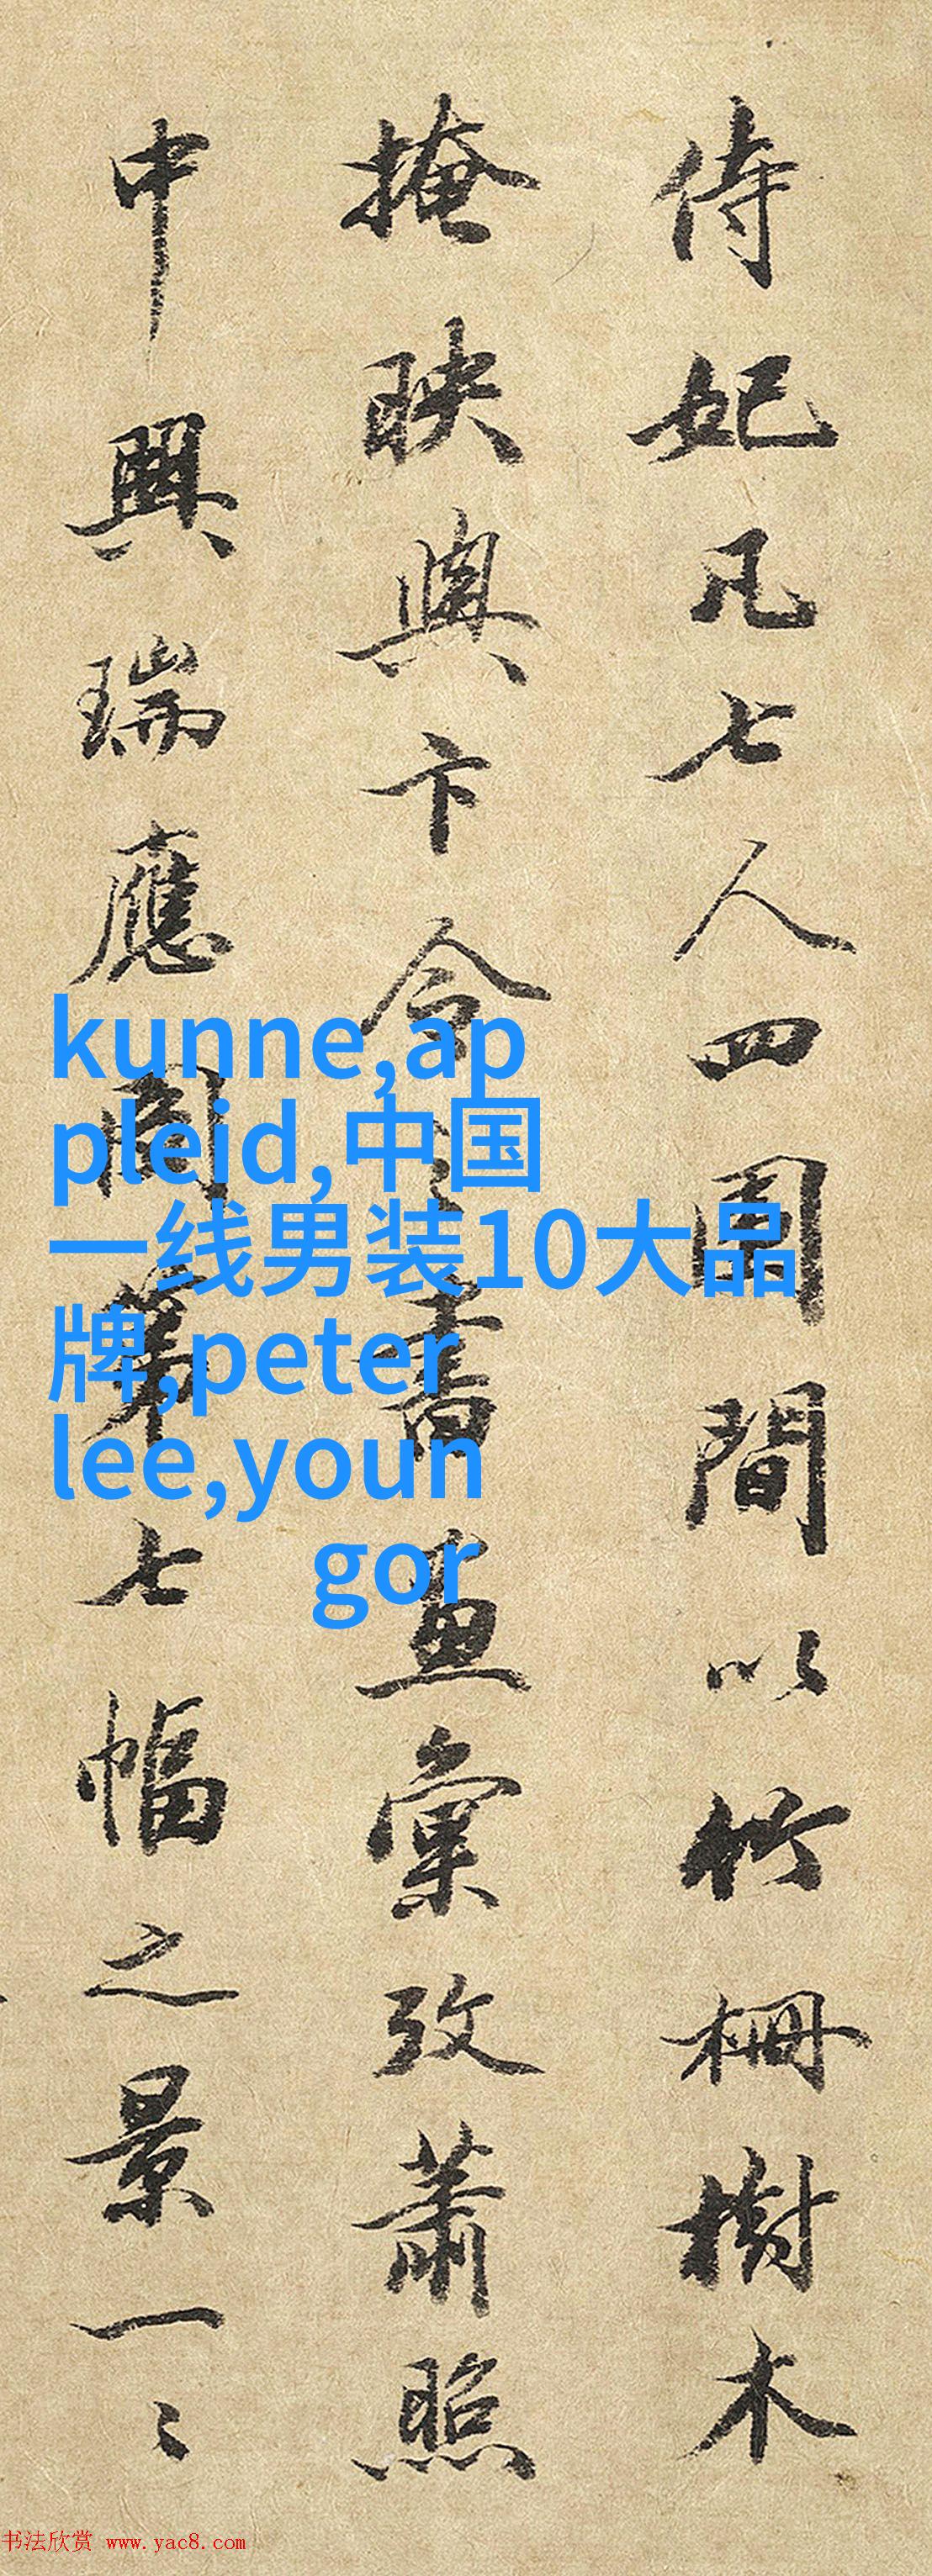 侍妃凡七人四周間以竹柵樹木
掩映與卞令之書畫彙攷蕭照
中興瑞應圖第七幅之景一〻
kunne,ap
pleid,中国
一线男装10大品
牌,peter
lee,youn
gor
书法欣赏 www.yac8.com